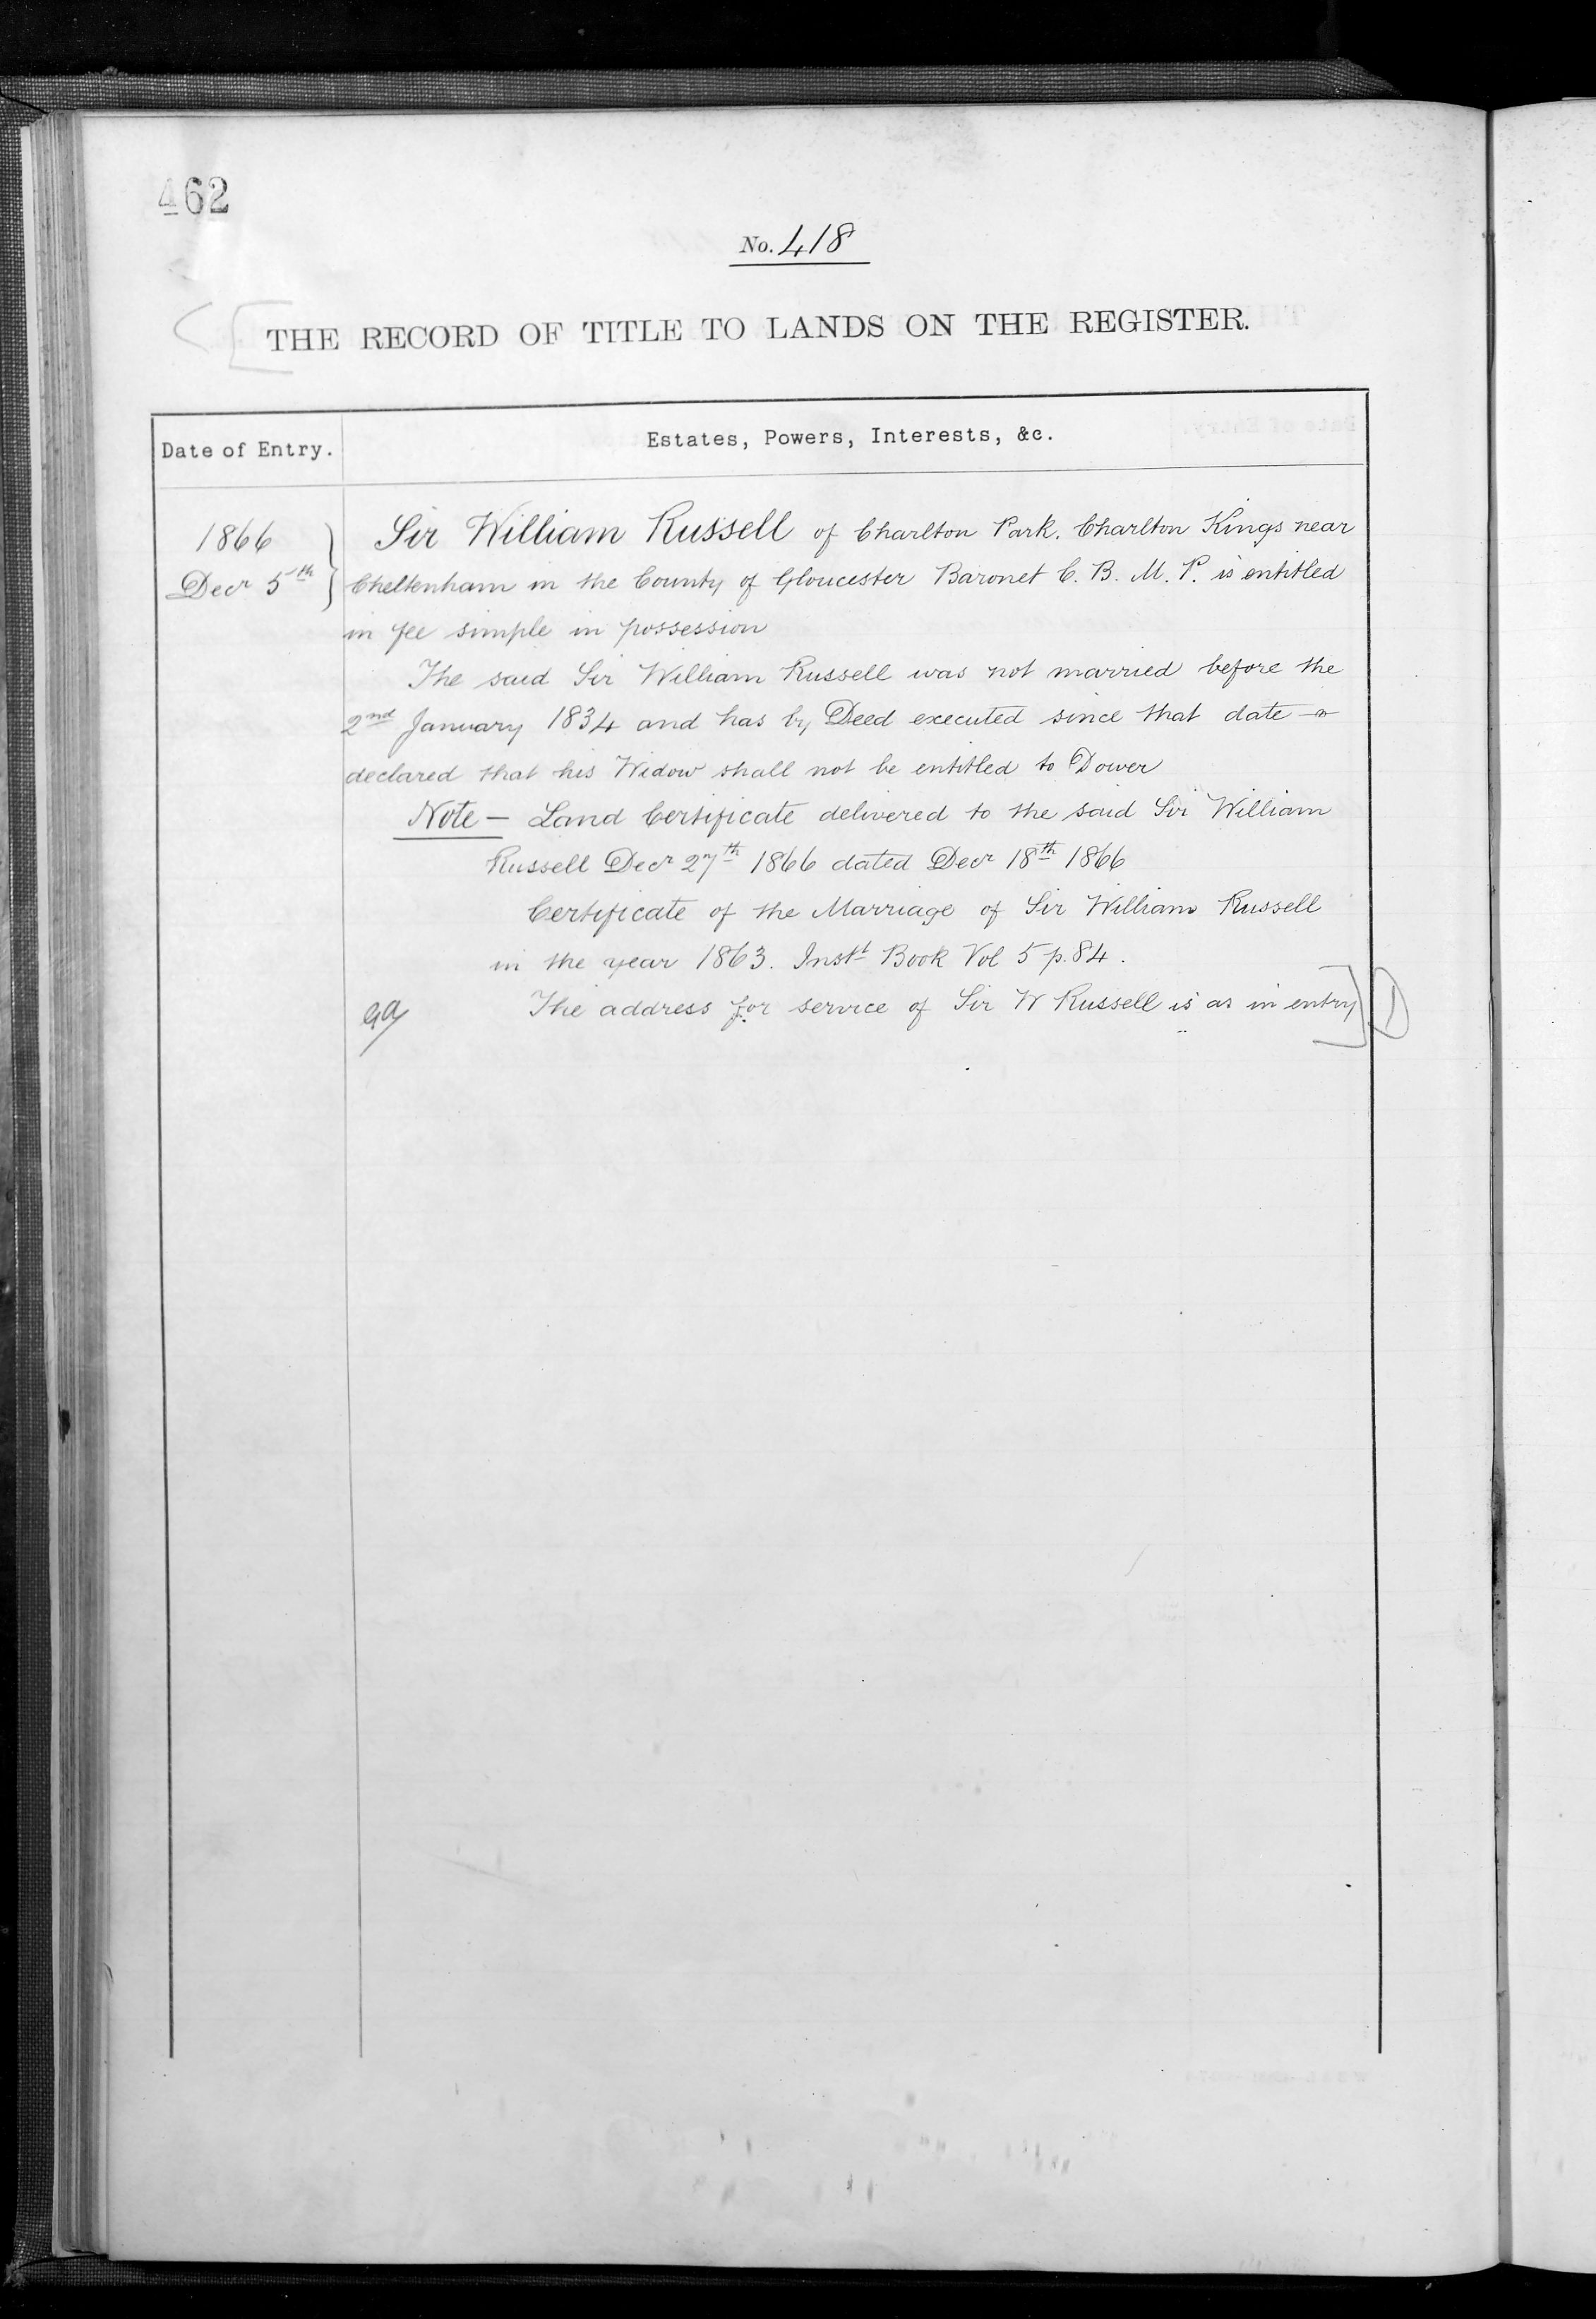 462
No. 418
THE RECORD OF TITLE TO LANDS ON THE REGISTER.
Date of Entry.
Estates, Powers, Interests, &c.
1866
Decr 5th
Sir William Russell of Charlton Park. Charlton Kings near
Cheltenham in the County of Gloucester Baronet C. B. M. P. is entitled
in fee simple in possession
The said Sir William Russell was not married before the
2nd January 1834 and has by Deed executed since that date
declared that his Widow shall not be entitled to Dower
Note — Land Certificate delivered to the said Sir William
Russell Decr 27th 1866 dated Decr 18th 1866
Certificate of the Marriage of Sir William Russell
in the year 1863. Instt Book Vol 5 p. 84.
The address for service of Sir W Russell is as in entry